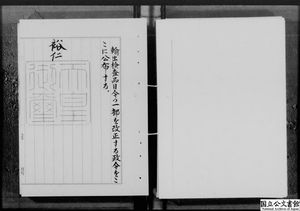 輸出検査品目令の一部を改正する政令をこ
こに公布する。
裕仁
天皇
御璽
国立公文書館
National Archives of Japan